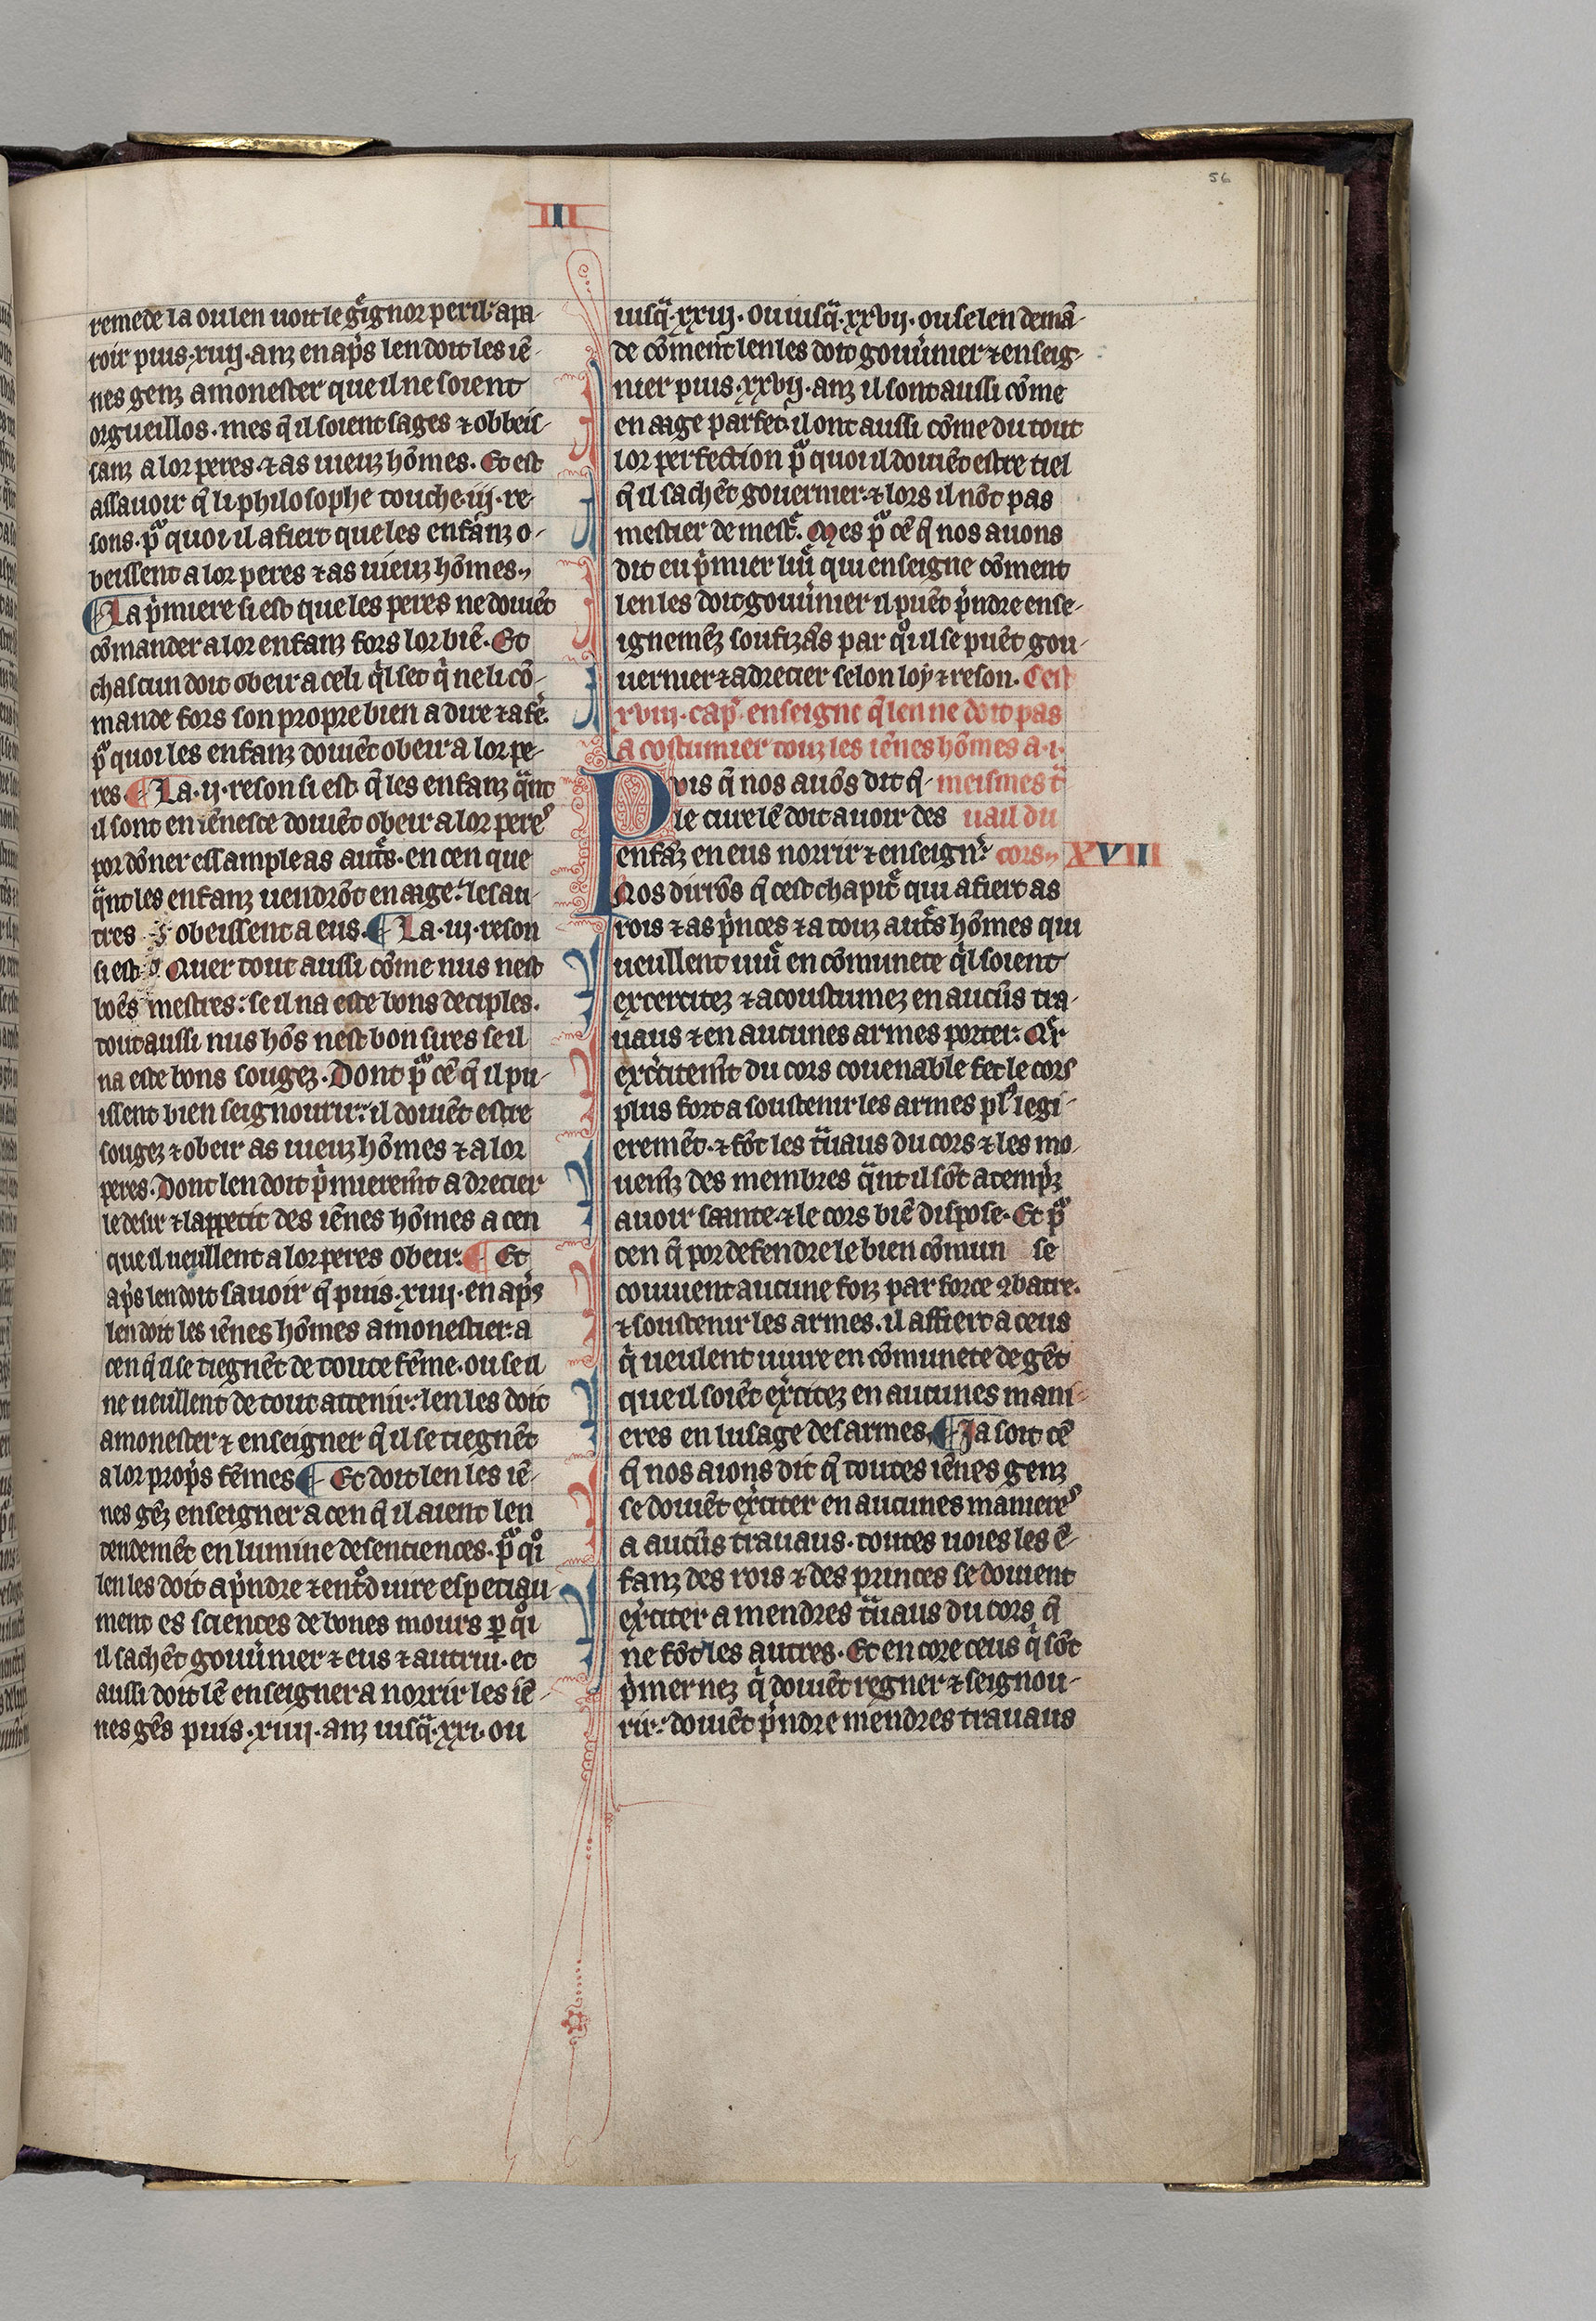 56
III
remede la ou len uoit le gͥgnor peril: apa-
roir puis .xiiij. anz en apͥs len doit les iē-
nes genz amonester que il ne soient
orgueillos. mes q̄ il soient sages ⁊ obbeis-
sanz a lor peres ⁊ as uieuz hōmes. Et est
assauoir q̄ li philosophe touche .iij. re-
sons. pͣ quoi il afiert que les enfanz o-
beissent a lor peres ⁊ as uieuz hōmes.
¶ La pͥmiere si est que les peres ne doiuēt
cōmander a lor enfanz fors lor biē. Et
chascun doit obeir a celi qͥl set qͥ ne li cō-
mande fors son propre bien a dire ⁊ a fē.
pͣ quoi les enfanz doiuēt obeir a lor pe-
res. ¶ La .ij. reson si est q̄ les enfanz qͣnt
il sont en iēnesce doiuēt obeir a lor peres
por dōner essample as autͤs. en cen que
qͣnt les enfanz uendrōt en aage: les au-
tres obeissent a eus. ¶ La .iij. reson
si est. Quer tout aussi cōme nus nest
boēs mestres: se il na este bons deciples.
tout aussi nus hōs nest bon sires se il
na este bons sougez. Dont pͣ cē q̄ il pu-
issent bien seignourir: il doiuēt estre
sougez ⁊ obeir as uieuz hōmes ⁊ a lor
peres. Dont len doit pͥmierem̄t adrecier
le desir ⁊ lappetit des iēnes hōmes a cen
que il ueullent a lor peres obeir: ¶ Et
apͥs len doit sauoir q̄ puis .xiiij. en apͥs
len doit les iēnes hōmes amonestier a
cen q̄ il se tiegnēt de toute fēme. ou se il
ne ueullent de tout attenir: len les doit
amonester ⁊ enseigner q̄ il se tiegnēt
a lor propͥs fēmes ¶ Et doit len les iē-
nes gēz enseigner a cen q̄ il aient len
tendemēt enlumine de sentiences. pͣ qͦi
len les doit apͥndre ⁊ entͦduire especiau-
ment es sciences de bones mours ꝑ qͦi
il sachēt gouūnier ⁊ eus ⁊ autrui. et
aussi doit lē enseigner a norrir les iē-
nes gēs puis .xiiij. anz iusqͣ .xxi. ou
iusqͣ .xxiij. ou iusqͣ .xxvij. ou se len demā-
de cōment len les doit gouūnier ⁊ enseig-
nier puis .xxvij. anz il sont aussi cōme
en aage parfet: il ont aussi cōme du tout
lor perfection pͣ quoi il doiuēt estre tiel
q̄ il sachēt gouernier: ⁊ lors il nōt pas
mestier de mestͤ. Mes pͣ cē q̄ nos auons
dit eu pͥmier liuͤ qui enseigne cōment
len les doit gouūnier il puēt pͥndre ense-
ignemēz soufizās par qͦi il se puēt gou-
uernier ⁊ adrecier selon loy ⁊ reson. Cest
xviij. cap̄. enseigne q̄ len ne doit pas
acostumier touz les iēnes hōmes a .i.
Puis q̄ nos auōs dit q̄- meismes tͣ
le cure lē doit auoir des uail du
enfāz en eus norrir ⁊ enseignͥ: cors XVIII
Nos dirōs q̄ cest chapitͤ qui afiert as
rois ⁊ as pͥnces ⁊ a touz autͤs hōmes qui
ueullent uiuͤ en cōmunete qͥl soient
excercitez ⁊ acoustumez en aucūs tra-
uaus ⁊ en aucunes armes porter: Qͬ
exͨcitem̄t du cors couenable fet le cors
plus fort a soustenir les armes plͥ legi-
eremēt. ⁊ fōt les tͣuaus du cors ⁊ les mo-
uem̄z des membres qͣnt il sōt atempͥz
auoir saante. ⁊ le cors biē dispose. Et pͣ
cen q̄ por defendre le bien cōmun se
couuient aucune foiz par force ꝯbatre.
⁊ soustenir les armes. il affiert a ceus
qͥ ueulent uiure en cōmunete de gēt
que il soiēt exͨcitez en aucunes mani-
eres en lusage des armes. ¶ Ja soit cē
q̄ nos aions dit q̄ toutes iēnes genz
se doiuēt exͨciter en aucunes manieres
a aucūs trauaus. toutes uoies les ē-
fanz des rois ⁊ des princes se doiuent
exͨciter a mendres tͣuaus du cors q̄
ne fōt les autres. Et encore ceus qͥ sōt
pͥmernez qͥ doiuēt regner ⁊ seignou-
rir: doiuēt pͥndre miendres trauaus